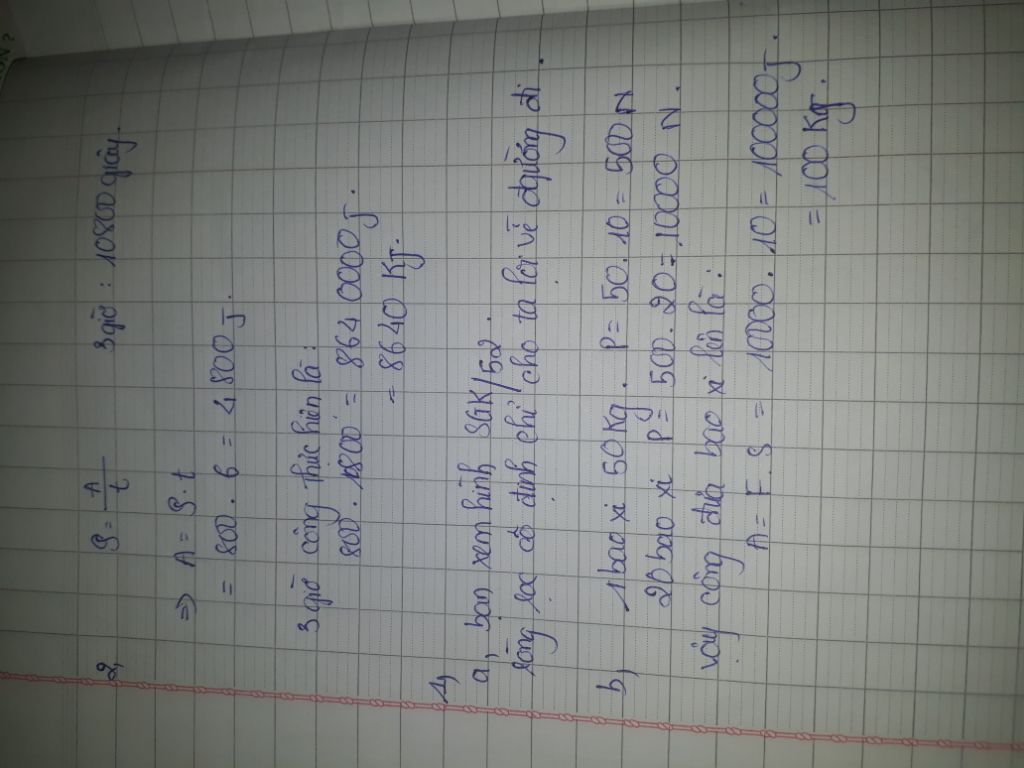 2, P = A/t 3 giờ : 10800 giây.
=> A = P.t
= 800 . 6 = 4800 J.
3 giờ công thực hiện là :
800 . 10800 = 8640000 J.
= 8640 KJ.
1,
a, bạn xem hình SGK/52.
ròng lọc cố định chỉ cho ta lợi về đường đi.
b, 1 bao xi 50 Kg. P = 50 . 10 = 500 N
20 bao xi P = 500 . 20 = 10000 N.
vậy công đưa bao xi lên là :
A = F . S = 10000 . 10 = 100000 J.
= 100 KJ.